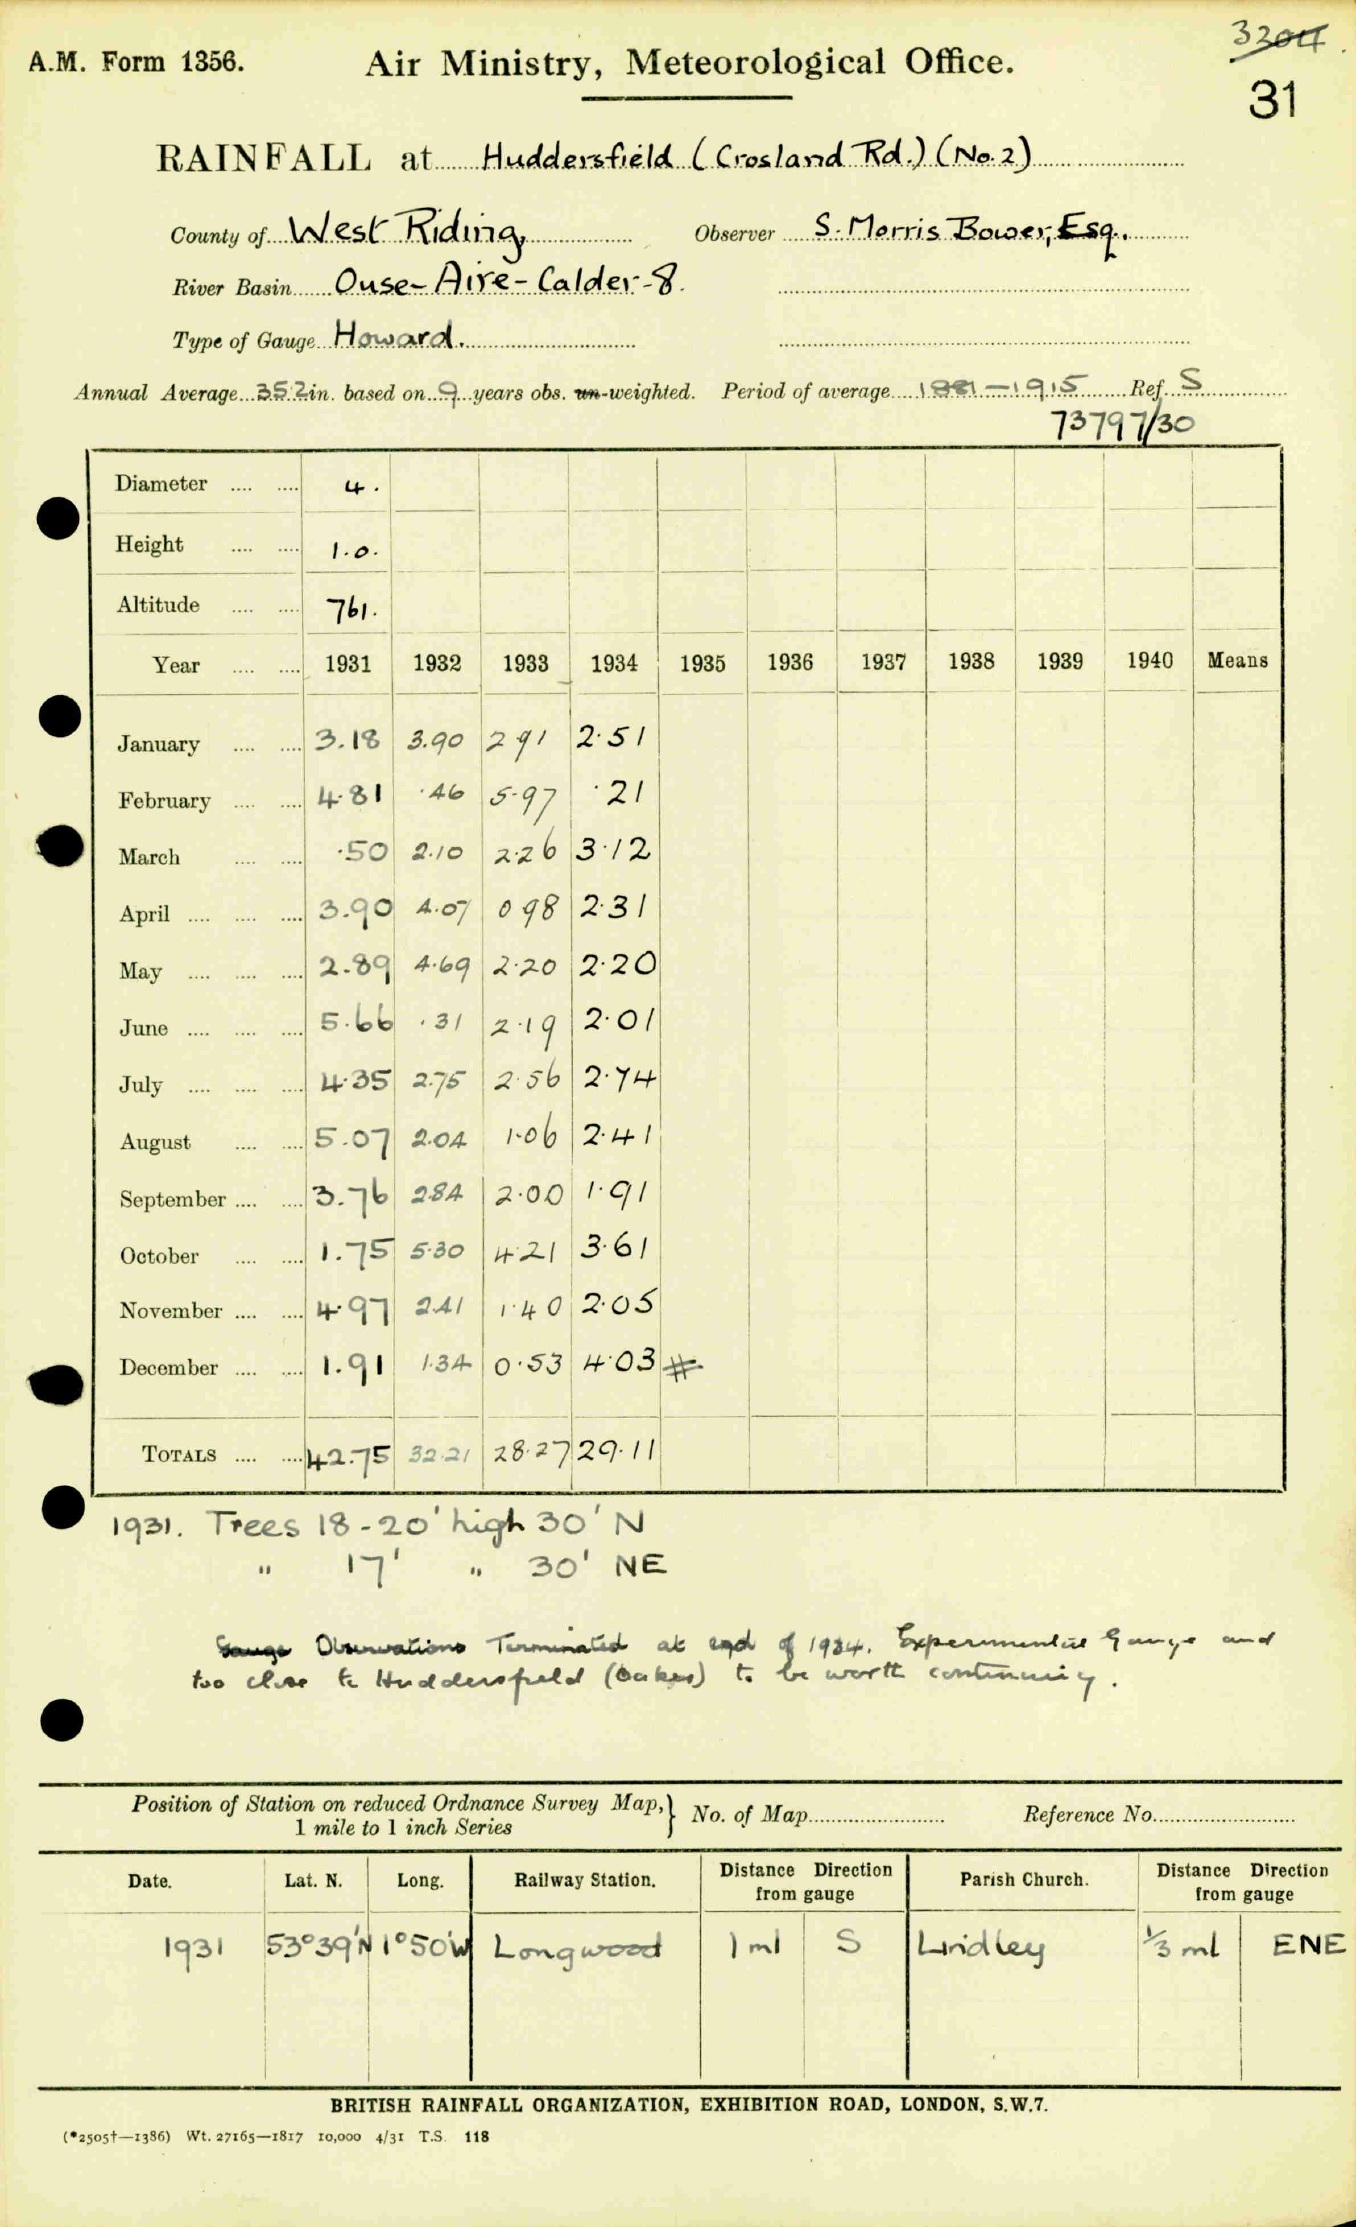 3304
A.M. Form 1356. Air Ministry, Meteorological Office.
31
RAINFALL at Huddersfield (Crosland Rd.) (No.2)
County of West Riding, Observer S. Morris Bower, Esq.
River Basin Ouse-Aire-Calder-8.
Type of Gauge Howard.
Annual Average 35.2 in. based on 9 years obs. un-weighted. Period of average 1881-1915 Ref. S
73797/30
Diameter .... .... 4.
Height .... .... 1.0.
Altitude .... .... 761.
Year .... .... 1931 1932 1933 1934 1935 1936 1937 1938 1939 1940 Means
January .... .... 3.18 3.90 2 91 2.51
February .... .... 4.81 .46 5.97 .21
March .... .... .50 2.10 2.26 3.12
April .... .... .... 3.90 4.07 0 98 2.31
May .... .... .... 2.89 4.69 2.20 2.20
June .... .... .... 5.66 .31 2.19 2.01
July .... .... .... 4.35 2.75 2.56 2.74
August .... .... 5.07 2.04 1.06 2.41
September .... .... 3.76 2.84 2.00 1.91
October .... .... 1.75 5.30 4.21 3.61
November .... .... 4.97 2.41 1.40 2.05
December .... .... 1.91 1.34 0.53 4.03 #
TOTALS .... .... 42.75 32.21 28.27 29.11
1931. Trees 18-20' high 30' N
" 17' " 30' NE
Gauge Observations Terminated at end of 1934. Experimental Gauge and
too close to Huddersfield (Oakes) to be worth continuing.
Position of Station on reduced Ordnance Survey Map,} No. of Map Reference No.
1 mile to 1 inch Series
Date. Lat. N. Long. Railway Station. Distance Direction from gauge Parish Church. Distance Direction from gauge
1931 53°39'N 1°50'W Longwood 1 ml S Lindley 1/3 ml ENE
BRITISH RAINFALL ORGANIZATION, EXHIBITION ROAD, LONDON, S.W.7.
(*2505†—1386) Wt. 27165—1817 10,000 4/31 T.S. 118